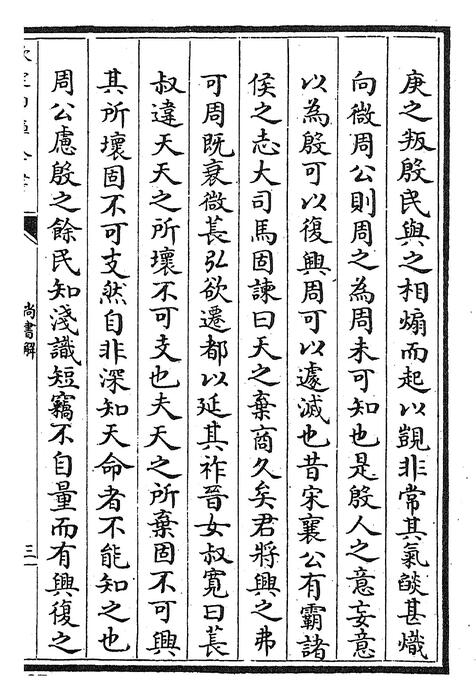 庚之叛殷民與之相煽而起以覬非常其氣燄甚熾
向微周公則周之為周未可知也是殷人之意妄意
以為殷可以復興周可以遽滅也昔宋襄公有霸諸
侯之志大司馬固諫曰天之棄商久矣君將興之弗
可周既衰微萇弘欲遷都以延其祚晉女叔寛曰萇
叔違天天之所壞不可支也夫天之所棄固不可興
其所壞固不可支然自非深知天命者不能知之也
周公慮殷之餘民知淺識短竊不自量而有興復之
尚書解
三